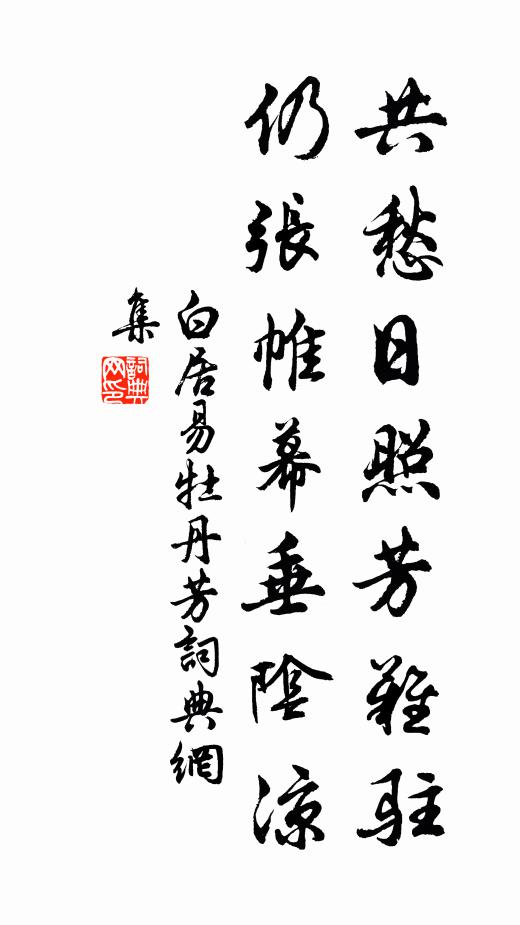 共愁日照芳難駐
仍張帷幕垂陰涼
白居易牡丹芳詞典網
集
詞典網印